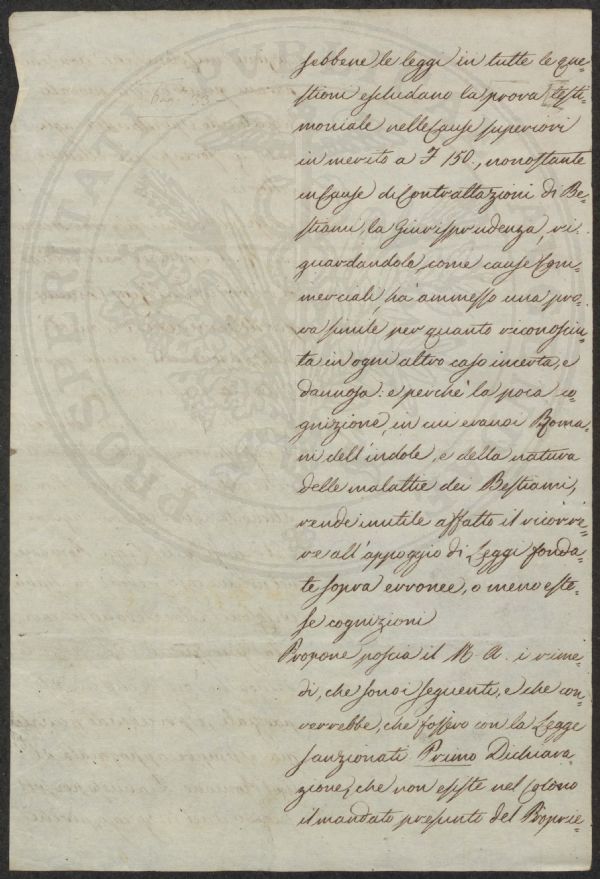 sebbene le leggi in tutte le que=
stioni escludano la prova testi=
moniale nelle Cause superiori
in merito a £ 150., nonostante
in Cause di Contrattazioni di Be=
stiami, la Giurisprudenza, ri=
guardandole, come cause Com=
merciali, ha ammesso una pro=
va simile, per quanto riconosciu=
ta in ogni altro caso incerta, e
dannosa: e perchè la poca co=
gnizione, in cui erano i Roma=
ni dell'indole, e della natura
delle malattie dei Bestiami,
rende inutile affatto il ricorre=
re all'appoggio di Leggi fonda=
te sopra erronee, o meno este=
se cognizioni
Propone poscia il N. A. i rime=
di, che sono i seguenti, e che con=
verrebbe, che fossero con la Legge
sanzionati Primo Dichiara
zione, che non esiste nel Colono
il mandato presunto del Proprie=